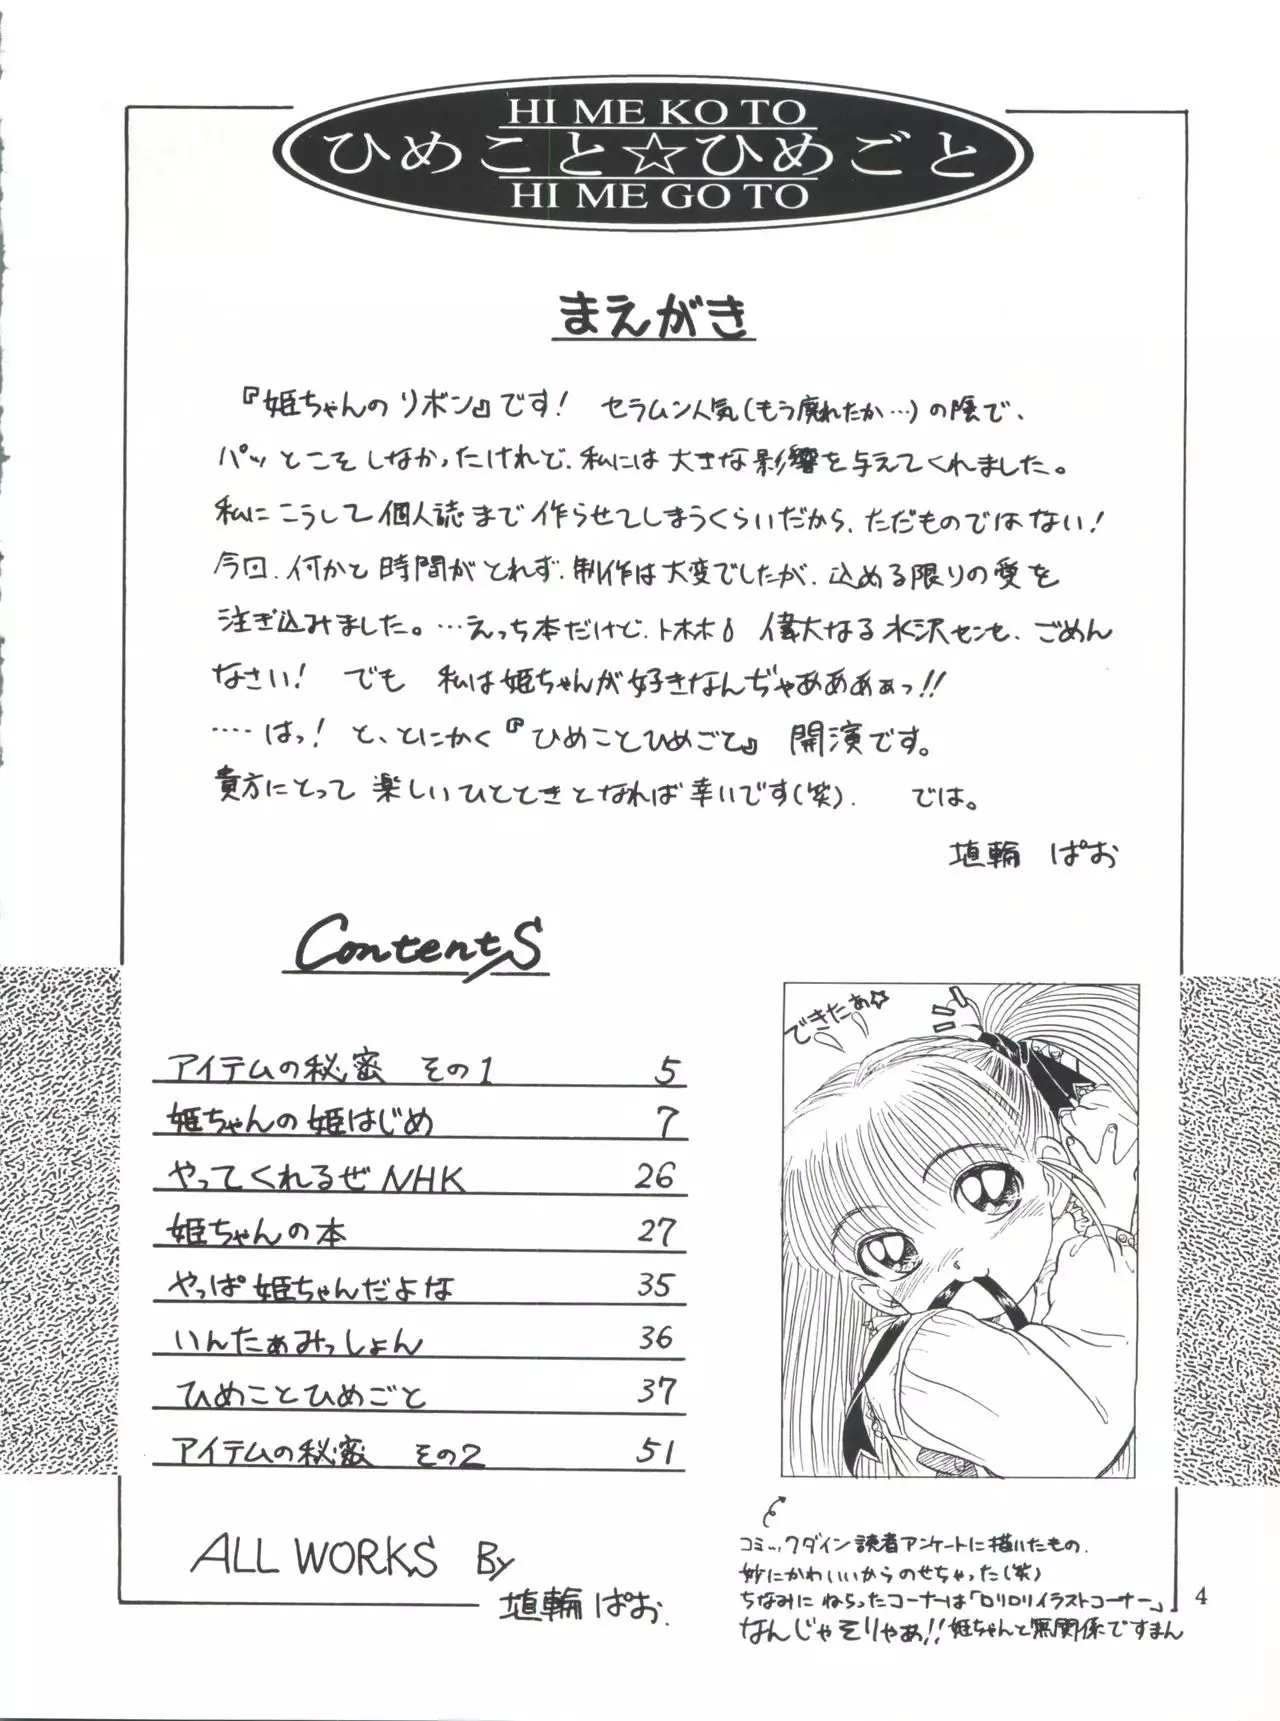 HI ME KO TO
ひめこと☆ひめごと
HI ME GO TO
まえがき
『姫ちゃんのリボン』です! セラムン人気(もう廃れたか…)の陰で、
パッとこそしなかったけれど、私には大きな影響を与えてくれました。
私にこうして個人誌まで作らせてしまうくらいだから、ただものではない!
今回、何かと時間がとれず、制作は大変でしたが、込める限りの愛を
注ぎ込みました。…えっち本だけど、トホホ 偉大なる水沢センセ、ごめん
なさい! でも 私は姫ちゃんが好きなんぢゃあああぁっ!!
‥‥はっ! と、とにかく『ひめことひめごと』 開演です。
貴方にとって楽しいひとときとなれば幸いです(笑). では。
埴輪 ぱお
Contents
アイテムの秘密 その1 5
姫ちゃんの姫はじめ 7
やってくれるぜNHK 26
姫ちゃんの本 27
やっぱ姫ちゃんだよな 35
いんたぁみっしょん 36
ひめことひめごと 37
アイテムの秘密 その2 51
ALL WORKS By
埴輪 ぱお.
できたぁ☆
コミックダイン読者アンケートに描いたもの.
妙にかわいいからのせちゃった(笑)
ちなみに ねらったコーナーは「ロリロリイラストコーナー」
なんじゃそりゃぁ!!姫ちゃんと無関係ですまん
4